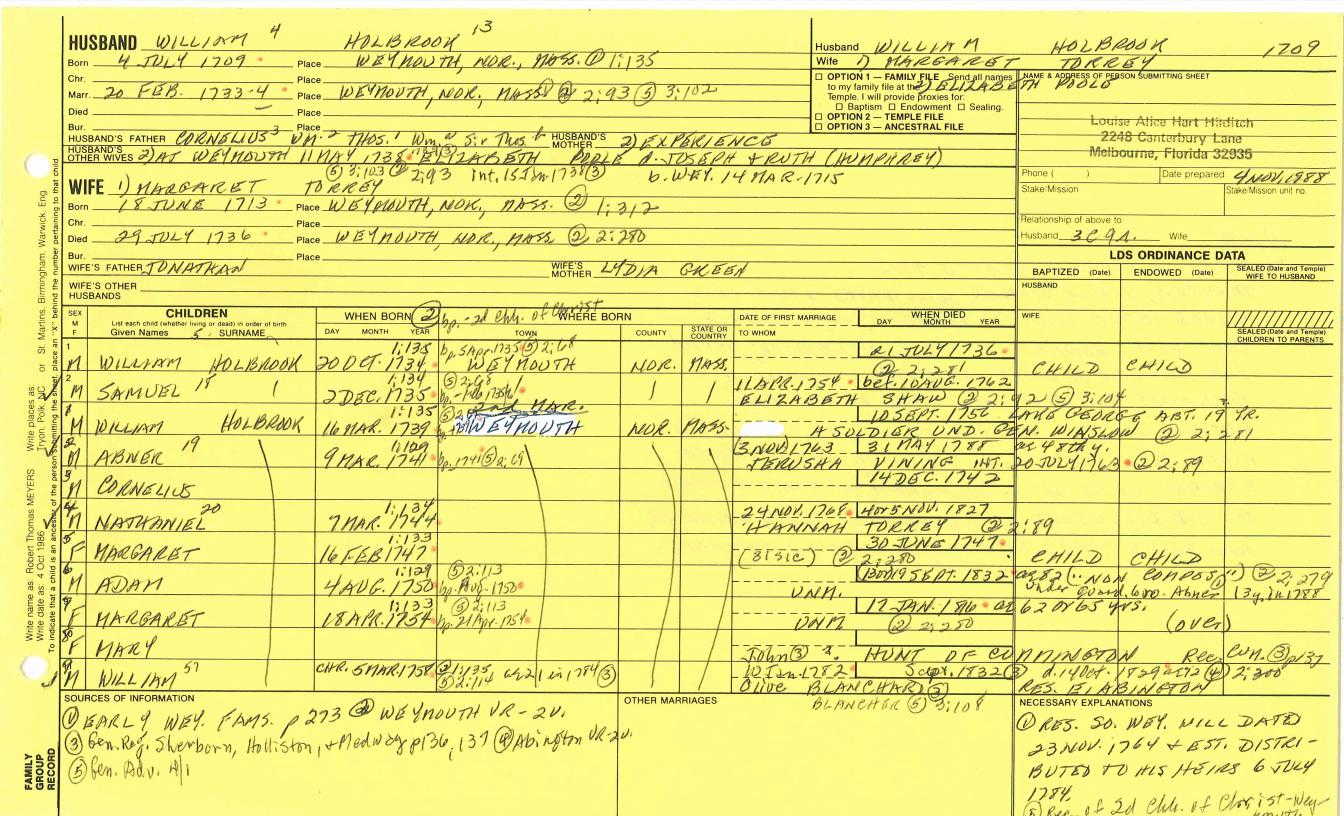 HUSBAND WILLIAM 4 HOLBROOK 13
Born 4 JULY 1709 Place WEYMOUTH, NOR., MASS. ② 1:135
Chr. Place
Marr. 20 FEB. 1733-4 Place WEYMOUTH, NOR, MASS ② 2:93 ⑤ 3:102
Died Place
Bur. Place
HUSBAND'S FATHER CORNELIUS 3 WM. 2 THOS. 1 Wm. a Sir Thos. b HUSBAND'S MOTHER 2) EXPERIENCE
HUSBAND'S OTHER WIVES 2) AT WEYMOUTH 11 MAY 1738 ELIZABETH POOLE d. JOSEPH & RUTH (HUMPHREY)
⑤ 3:103 ② 2:93 Int. 15 Jan 1738 ③ b. WEY. 14 MAR. 1715
WIFE 1) MARGARET TORREY
Born 18 JUNE 1713 Place WEYMOUTH, NOR, MASS. ② 1:312
Chr. Place
Died 29 JULY 1736 Place WEYMOUTH, NOR, MASS ② 2:280
Bur. Place
WIFE'S FATHER JONATHAN WIFE'S MOTHER LYDIA GREEN
WIFE'S OTHER HUSBANDS
Husband WILLIAM HOLBROOK 1709
Wife 1) MARGARET TORREY
2) ELIZABETH POOLE
OPTION 1 — FAMILY FILE Send all names
to my family file at the
Temple. I will provide proxies for:
Baptism Endowment Sealing.
OPTION 2 — TEMPLE FILE
OPTION 3 — ANCESTRAL FILE
NAME & ADDRESS OF PERSON SUBMITTING SHEET
Louise Alice Hart Hirditch
2248 Canterbury Lane
Melbourne, Florida 32935
Phone ( ) Date prepared 4 NOV. 1988
Stake/Mission Stake/Mission unit no.
Relationship of above to
Husband 3C 9R. Wife
LDS ORDINANCE DATA
BAPTIZED (Date) ENDOWED (Date) SEALED (Date and Temple) WIFE TO HUSBAND
HUSBAND
WIFE
SEALED (Date and Temple) CHILDREN TO PARENTS
SEX M F
CHILDREN
List each child (whether living or dead) in order of birth
Given Names 5 SURNAME
WHEN BORN ②
DAY MONTH YEAR
bp. - 2d Chh. of Christ
WHERE BORN
TOWN COUNTY STATE OR COUNTRY
DATE OF FIRST MARRIAGE
TO WHOM
WHEN DIED
DAY MONTH YEAR
1 M WILLIAM HOLBROOK 1:135 20 OCT. 1734 bp. 5 Apr. 1735 ⑤ 2:68 WEYMOUTH NOR. MASS. 21 JULY 1736 ② 2:281 CHILD CHILD
2 M SAMUEL 18 1:134 2 DEC. 1735 ⑤ 2:68 11 APR. 1754 bef. 10 AUG. 1762
ELIZABETH SHAW ② 2:92 ⑤ 3:104
2nd MAR.
1 M WILLIAM HOLBROOK 1:135 16 MAR. 1739 WEYMOUTH NOR. MASS. 10 SEPT. 1756 LAKE GEORGE ABT. 19 Yr.
A SOLDIER UND. GEN. WINSLOW ② 2:281
2 M ABNER 19 1:129 9 MAR. 1741 bp. 1741 ⑤ 2:69 3 NOV. 1763 31 MAY 1788 or 48th y.
JERUSHA VINING INT. 20 JULY 1763 ② 2:89
3 M CORNELIUS 14 DEC. 1742
4 M NATHANIEL 20 1:134 7 MAR. 1744 24 NOV. 1768 4 or 5 NOV. 1827
HANNAH TORREY ② 2:89
5 F MARGARET 1:133 16 FEB 1747 30 JUNE 1747
(8 SIC) ② 2:280 CHILD CHILD
6 M ADAM 1:129 4 AUG. 1750 ⑤ 2:113 bp. Aug. 1750 UNM. SEPT. 1832 ae 82 ("NON COMPOS") ② 2:279
under guard. bro. Abner 13 y. in 1788
7 F MARGARET 1:133 18 APR. 1754 ⑤ 2:113 bp. 21 Apr. 1754 UNM 17 JAN. 1816 ae 62 or 65 yrs.
② 2:280 (over)
8 F MARY John ③ HUNT OF CUMMINGTON Rec. Cum. ③ p137
9 M WILLIAM 57 CHR. 5 MAR. 1758 ② 1:135 ⑤ 2:114 ae 21 in 1784 ③ 10 Jan. 1782 Sept. 1832 ③ d. 14 Oct. 1829 ae 72 ④ 2:300
Olive BLANCHARD ③ RES. E. ABINGTON
BLANCHER ⑤ 3:108
SOURCES OF INFORMATION
① EARLY WEY. FAMS. p 273 ② WEYMOUTH VR - 2V.
③ Gen. Reg. Sherborn, Holliston, & Medway p136, 137 ④ Abington VR-2V.
⑤ Gen. Adv. 4/1
OTHER MARRIAGES
NECESSARY EXPLANATIONS
① RES. SO. WEY. WILL DATED
23 NOV. 1764 & EST. DISTRI-
BUTED TO HIS HEIRS 6 JULY
1784.
⑤ Rec. of 2d Chh. of Christ-Wey-
mouth
FAMILY GROUP RECORD
Write name as: Robert Thomas MEYERS Write places as: Tryon, Polk, NC or St. Martins, Birmingham, Warwick, Eng
Write date as: 4 Oct 1986
To indicate that a child is an ancestor of the person submitting the sheet, place an "X" behind the number pertaining to that child